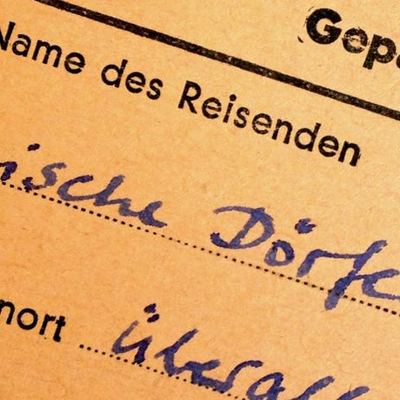 Gepä
Name des Reisenden
ische Dörfe
nort überall